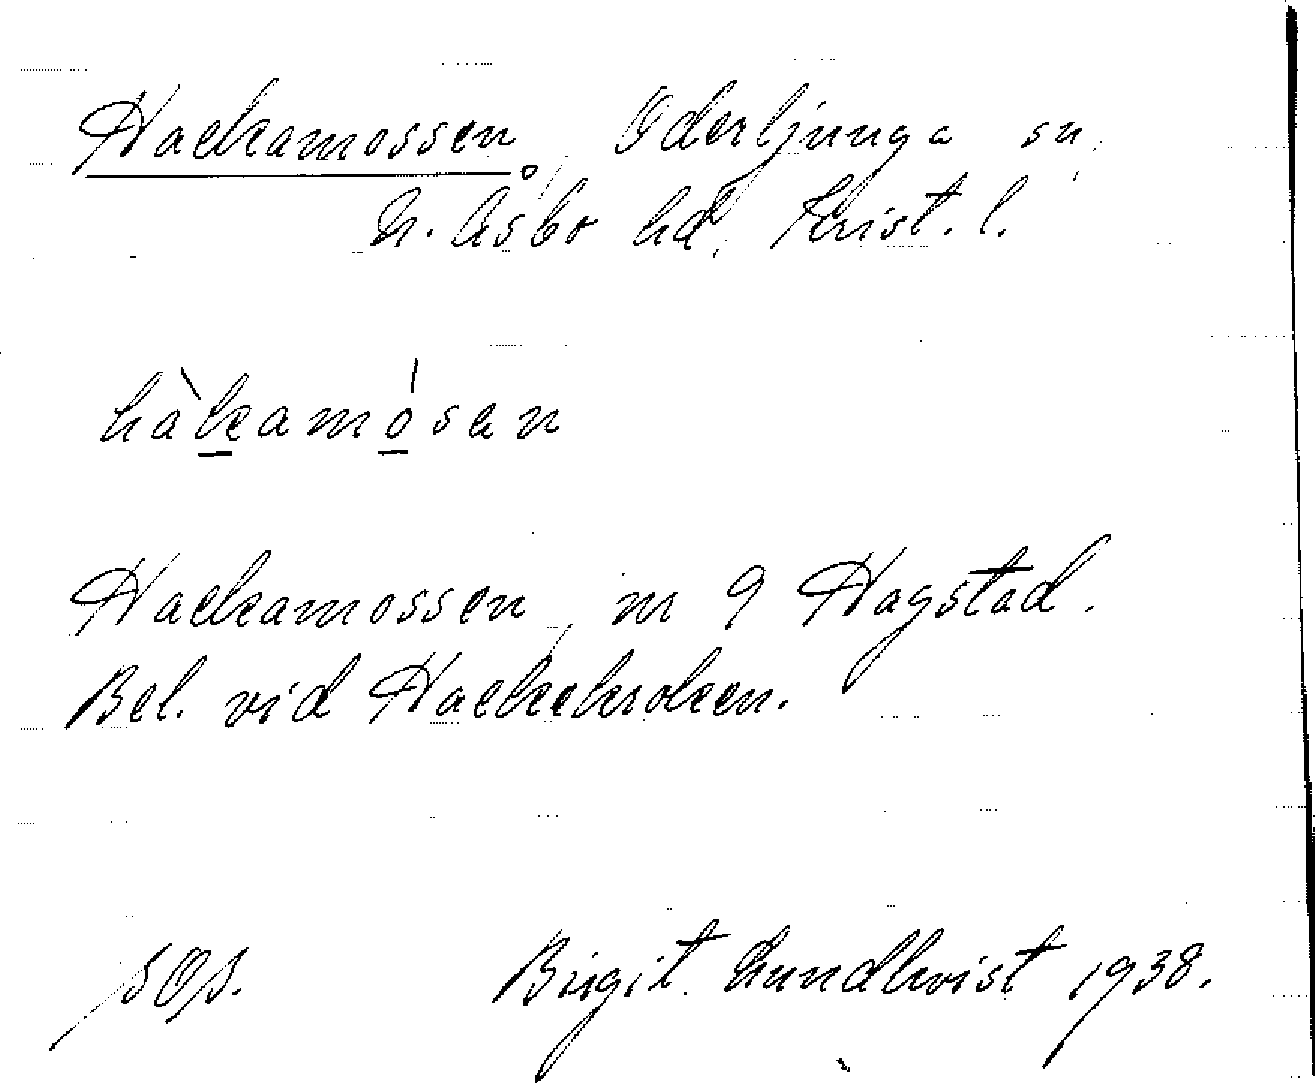 Hackamossen, Oderljunga sn,
N. Åsbo hd, Krist. l.
hàkamósen
Hackamossen, m 9 Hagstad.
Bel. vid Hackekroken.
SOS. Birgit Lundkvist 1938.